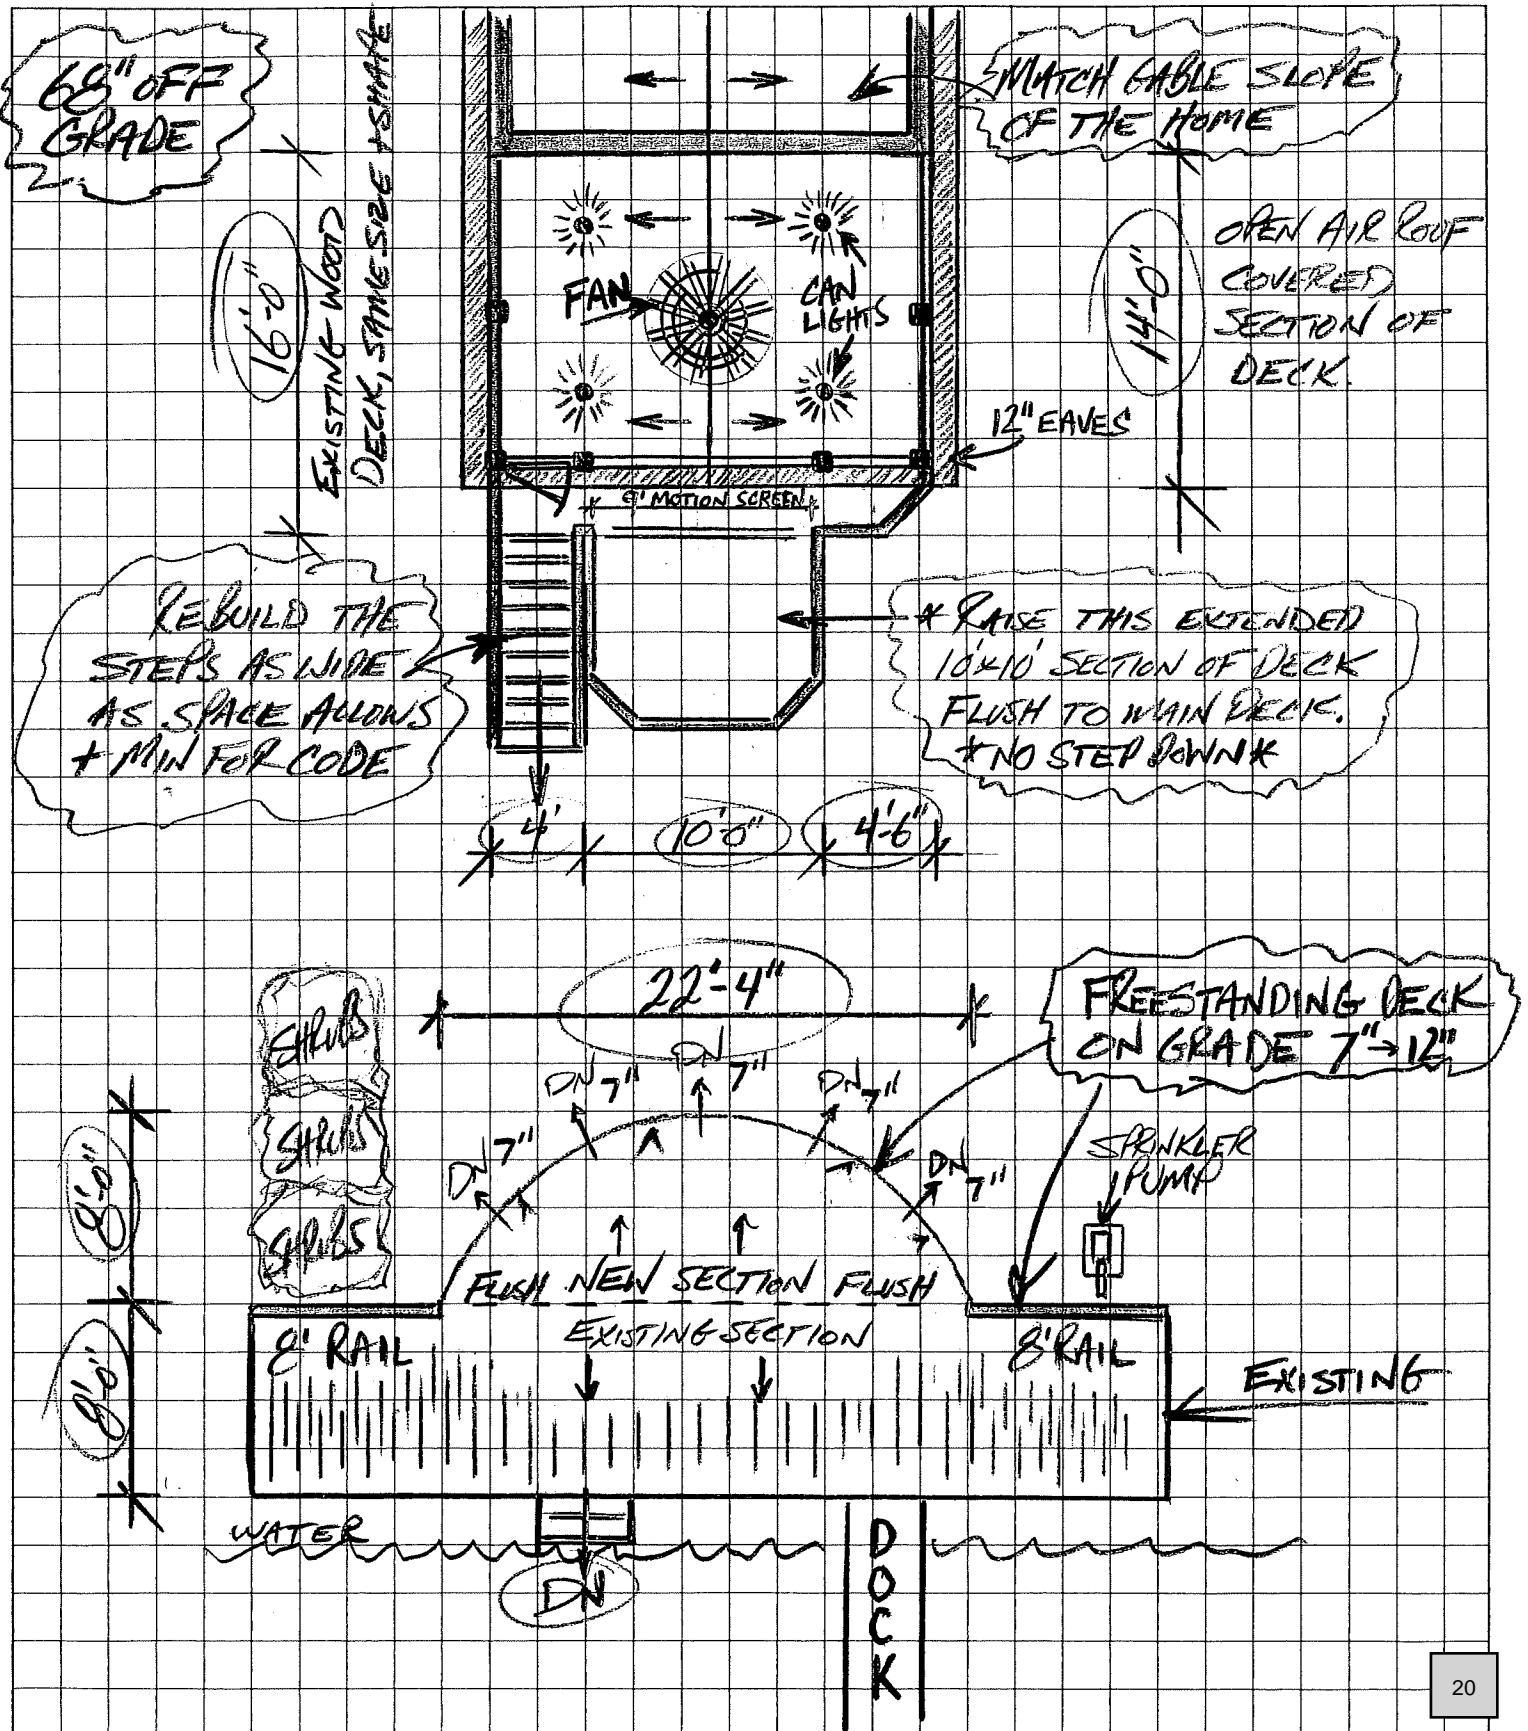 68" OFF
GRADE
MATCH GABLE SLOPE
OF THE HOME
16'-0"
EXISTING WOOD
DECK, SAME SIZE + SHAPE
FAN
CAN
LIGHTS
14'-0"
OPEN AIR ROOF
COVERED
SECTION OF
DECK.
12" EAVES
9' MOTION SCREEN
REBUILD THE
STEPS AS WIDE
AS SPACE ALLOWS
* MIN FOR CODE
* RAISE THIS EXTENDED
10'x10' SECTION OF DECK
FLUSH TO MAIN DECK.
*NO STEP DOWN*
4'
10'-0"
4'-6"
22'-4"
FREESTANDING DECK
ON GRADE 7"→12"
SHRUBS
SHRUBS
SHRUBS
DN 7"
DN 7"
DN 7"
DN 7"
DN 7"
SPRINKLER
PUMP
8'-0"
8'-0"
FLUSH NEW SECTION FLUSH
EXISTING SECTION
8' RAIL
8' RAIL
EXISTING
WATER
DN
DOCK
20